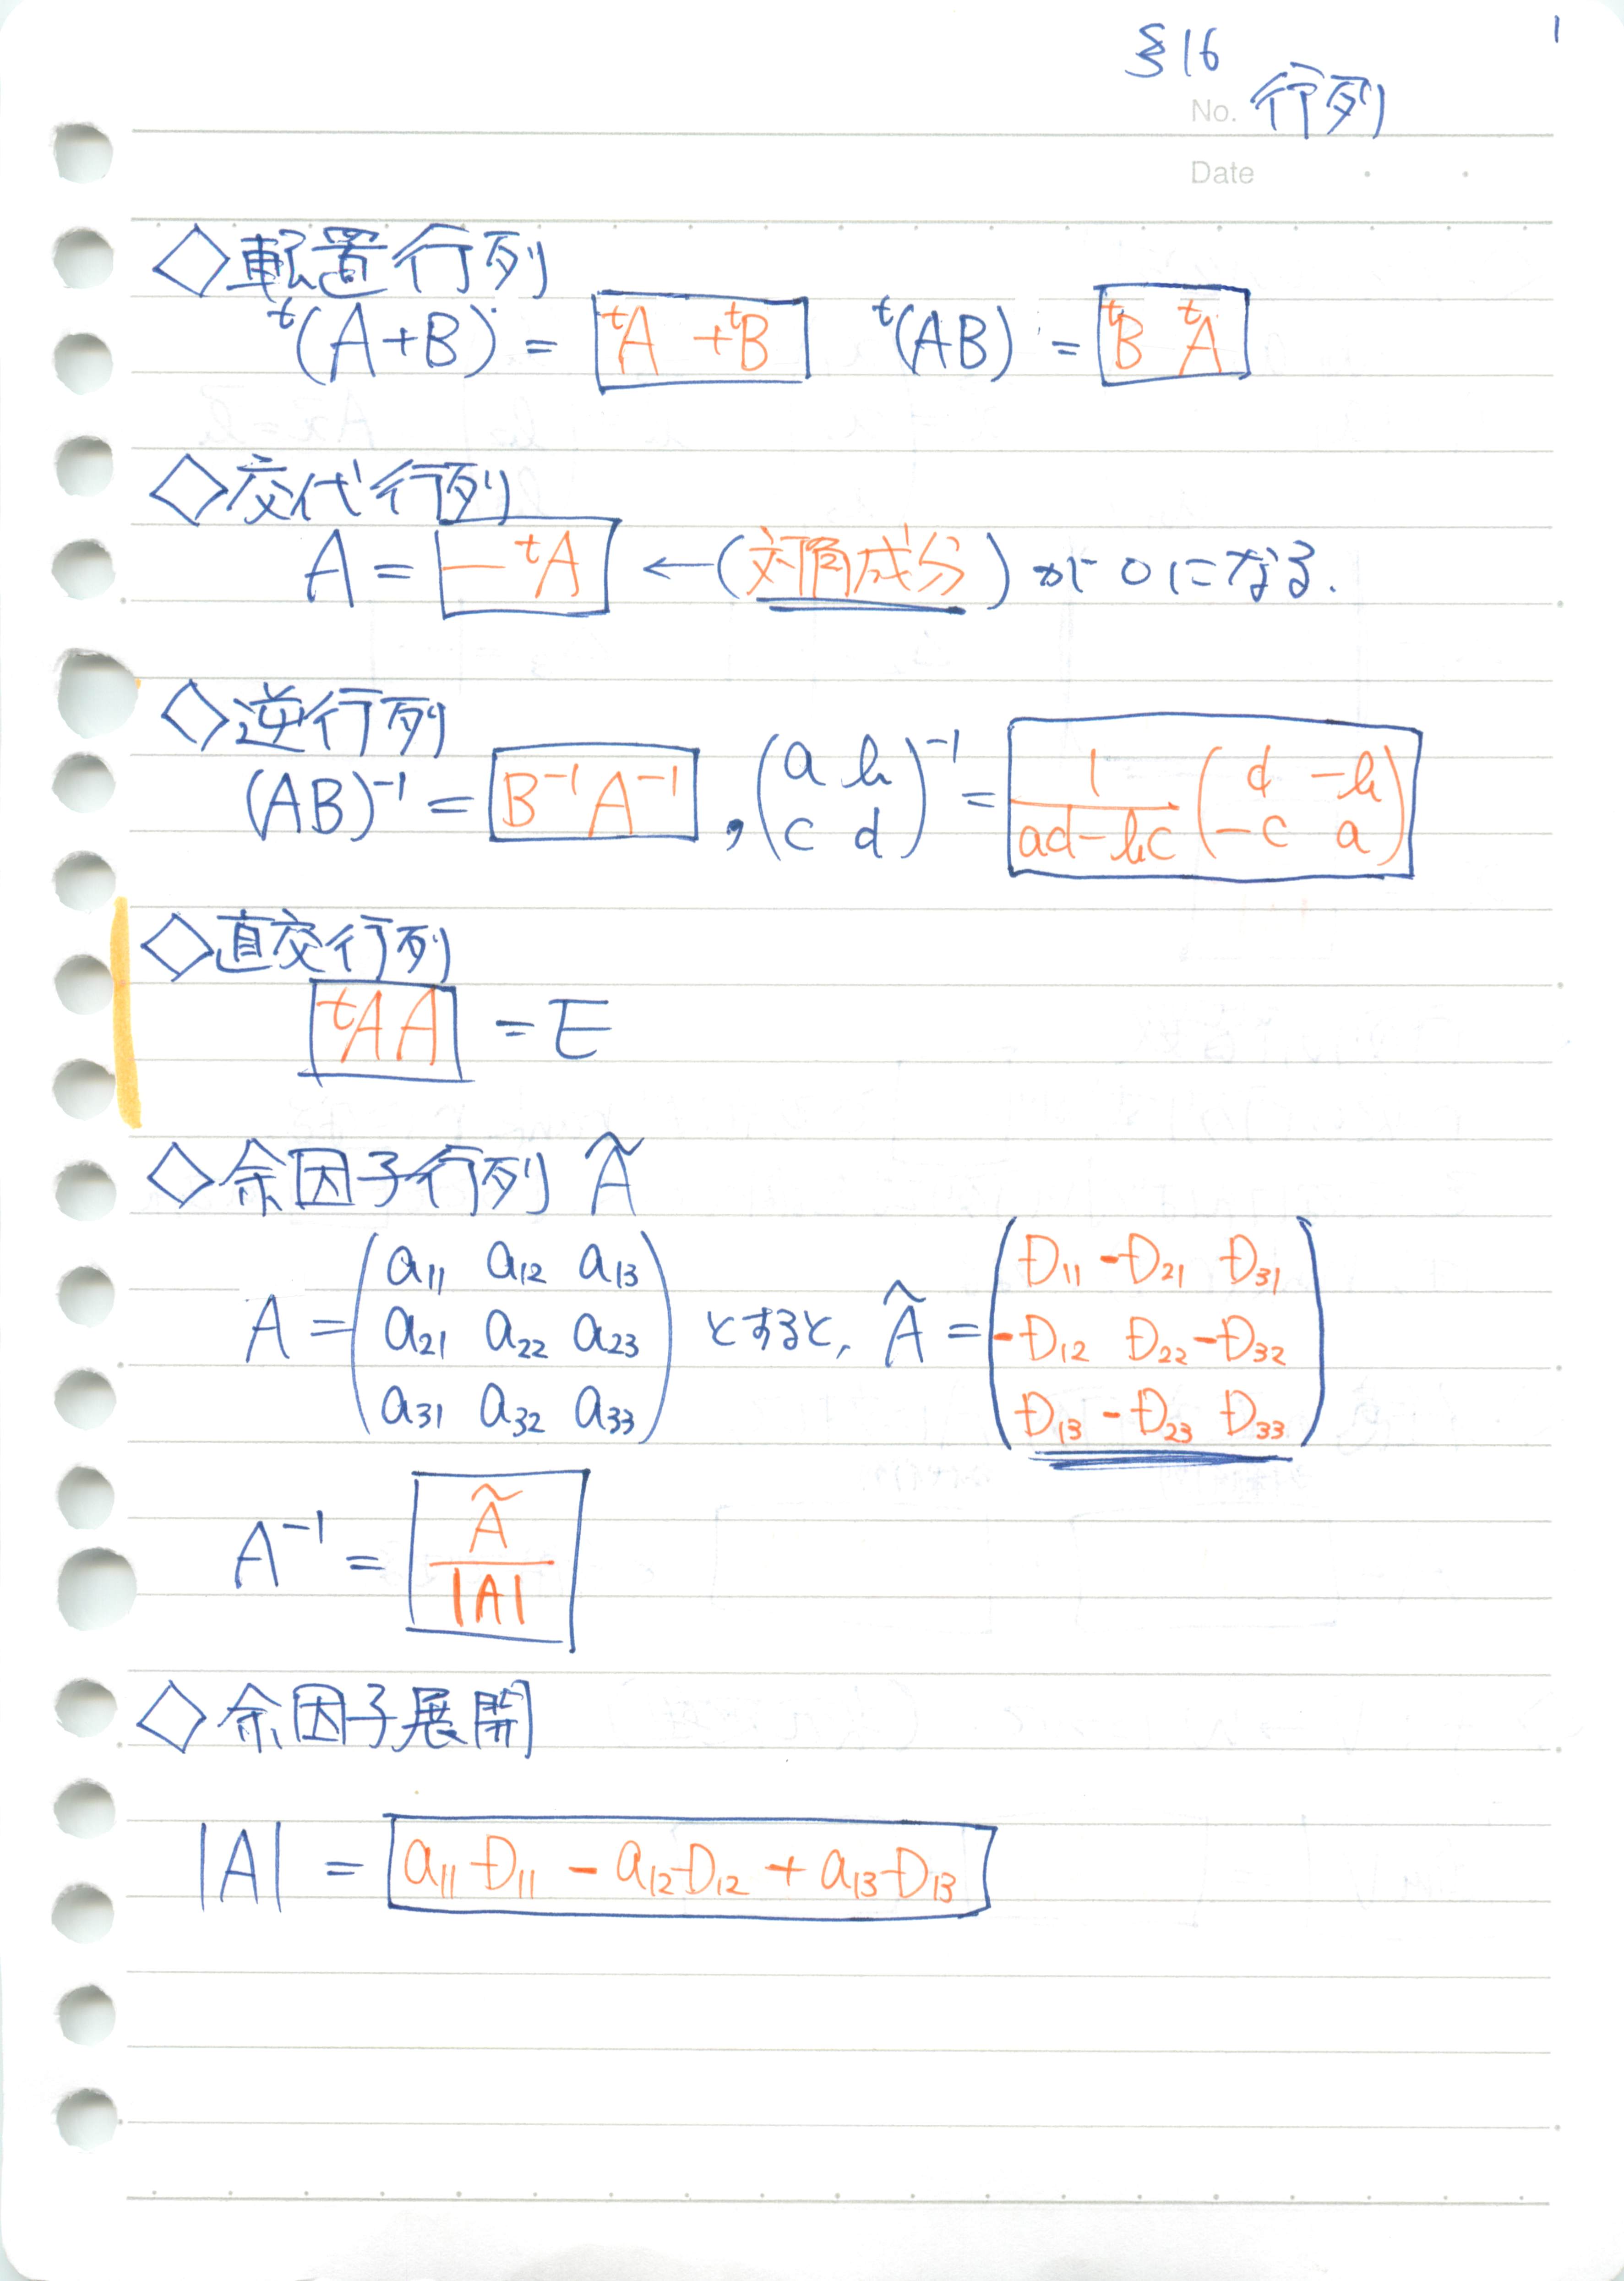 §16
1
No. 行列
Date
◇転置行列
ᵗ(A+B) = ᵗA + ᵗB　ᵗ(AB) = ᵗB ᵗA
◇交代行列
A = −ᵗA ←(対角成分) が0になる.
◇逆行列
(AB)⁻¹ = B⁻¹A⁻¹ , (a b / c d)⁻¹ = 1/(ad−bc) (d −b / −c a)
◇直交行列
ᵗAA = E
◇余因子行列 Ã
A = (a₁₁ a₁₂ a₁₃ / a₂₁ a₂₂ a₂₃ / a₃₁ a₃₂ a₃₃) とすると, Ã = (D₁₁ −D₂₁ D₃₁ / −D₁₂ D₂₂ −D₃₂ / D₁₃ −D₂₃ D₃₃)
A⁻¹ = Ã/|A|
◇余因子展開
|A| = a₁₁D₁₁ − a₁₂D₁₂ + a₁₃D₁₃